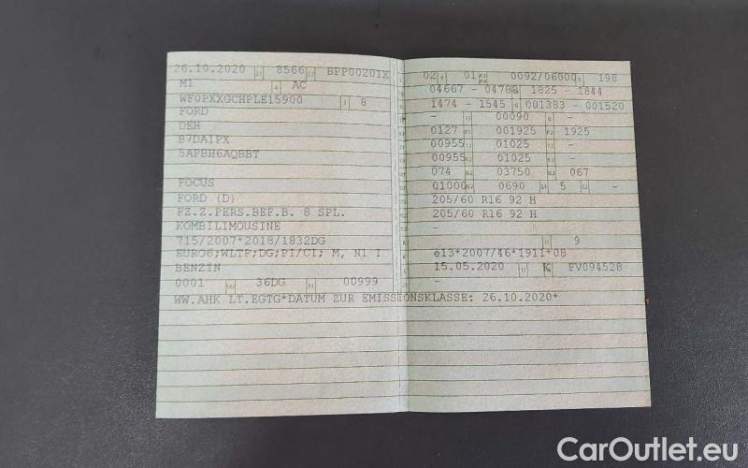 26.10.2020 8566 BPP00201X
M1 AC
WF0PXXGCHPLE15900 8
FORD
DEH
B7DA1PX
5APBH6AQBBT
FOCUS
FORD (D)
FZ.Z.PERS.BEF.B. 8 SPL.
KOMBILIMOUSINE
715/2007*2018/1832DG
EURO6;WLTP;DG;PI/CI; M, N1 I
BENZIN
0001 36DG 00999
WW.AHK LT.EGTG*DATUM ZUR EMISSIONSKLASSE: 26.10.2020*
02 01 0092/06000 198
04667 - 04786 1825 - 1844
1474 - 1545 001383 - 001520
- 00090 -
0127 001925 1925
00955 01025 -
00955 01025 -
074 03750 067
01000 0690 5 -
205/60 R16 92 H
205/60 R16 92 H
- 9
e13*2007/46*1911*08
15.05.2020 K FV094528
CarOutlet.eu